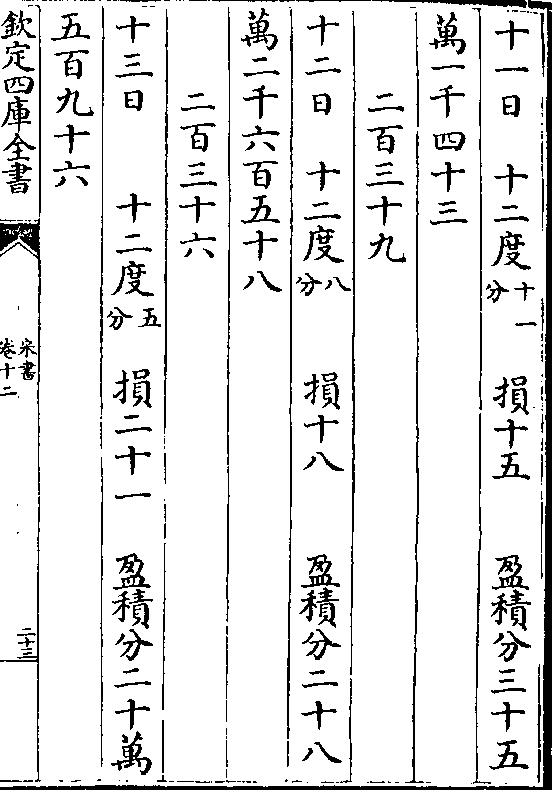 十一日　十二度十一分　損十五　盈積分三十五
萬一千四十三
二百三十九
十二日　十二度八分　損十八　盈積分二十八
萬二千六百五十八
二百三十六
十三日　十二度五分　損二十一　盈積分二十萬
五百九十六
欽定四庫全書
宋書
卷十二
二十三